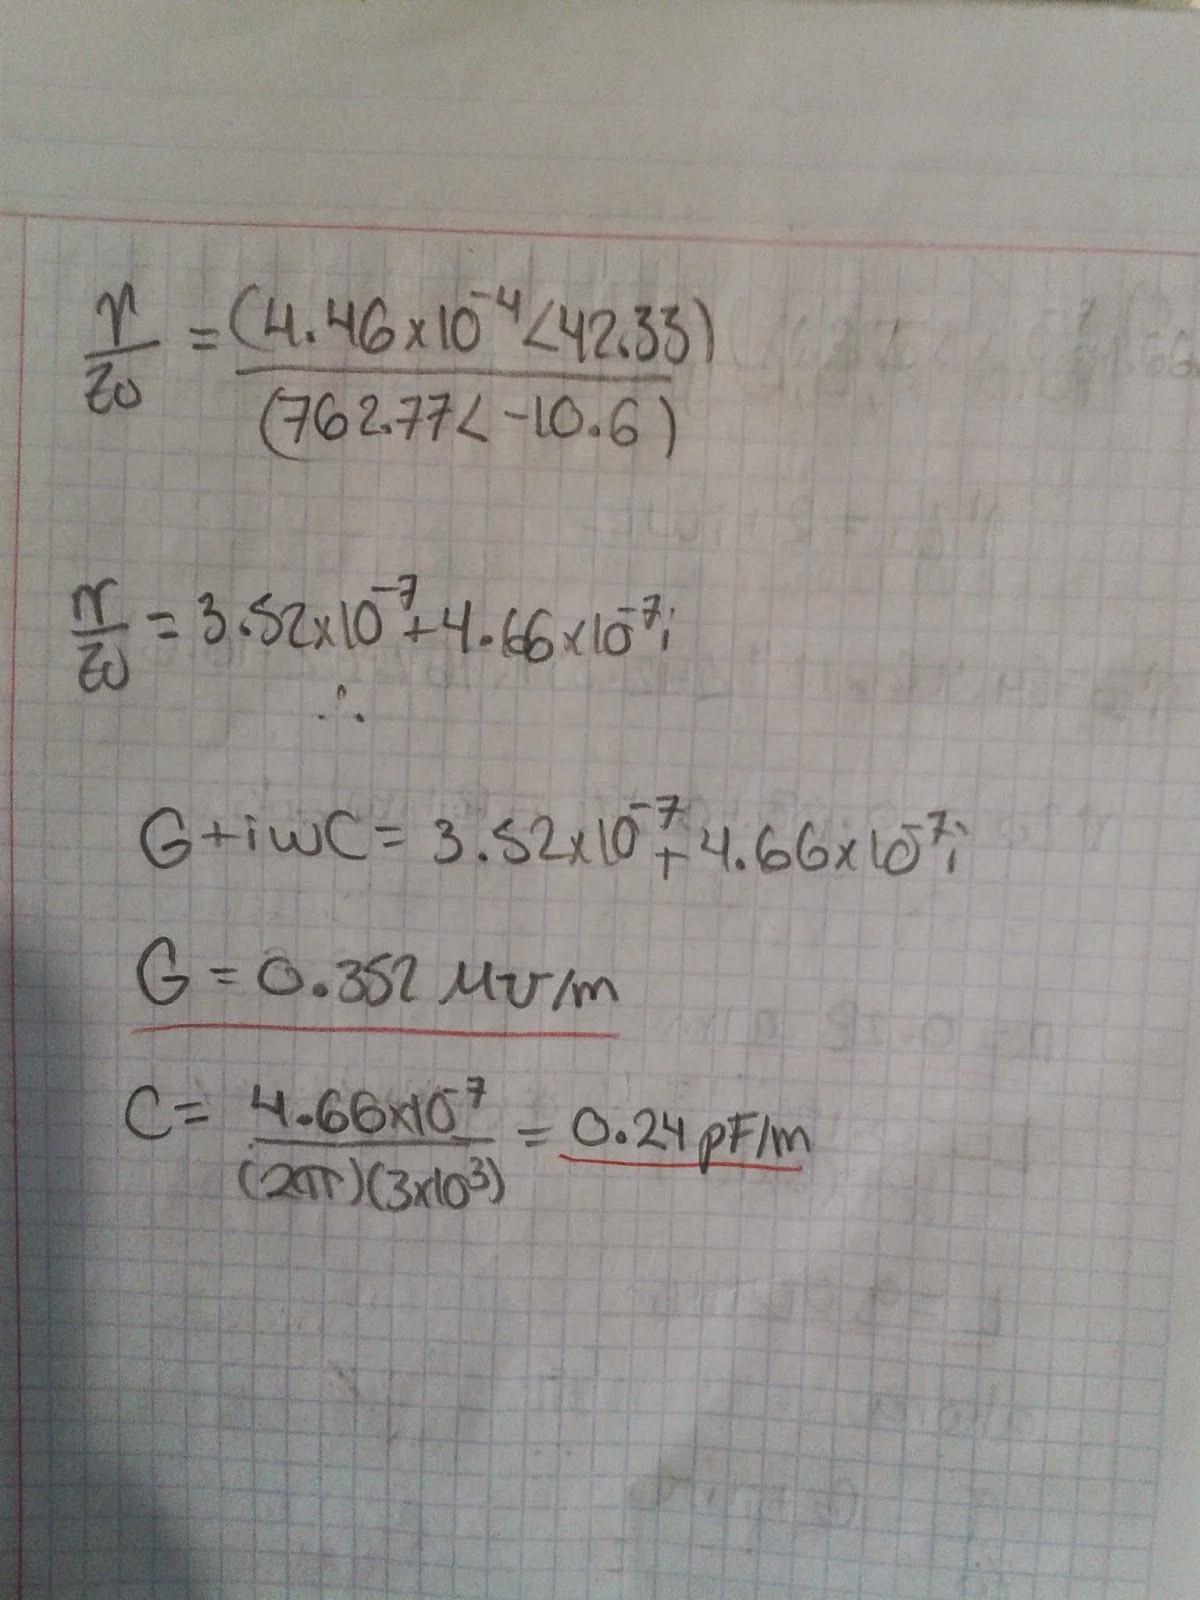 γ/Zo = (4.46x10^-4<42.33)/(762.77<-10.6)
γ/Zo = 3.52x10^-7+4.66x10^-7i
∴
G+iwC= 3.52x10^-7+4.66x10^-7i
G=0.352 μ℧/m
C= 4.66x10^-7/(2π)(3x10^3) = 0.24 pF/m